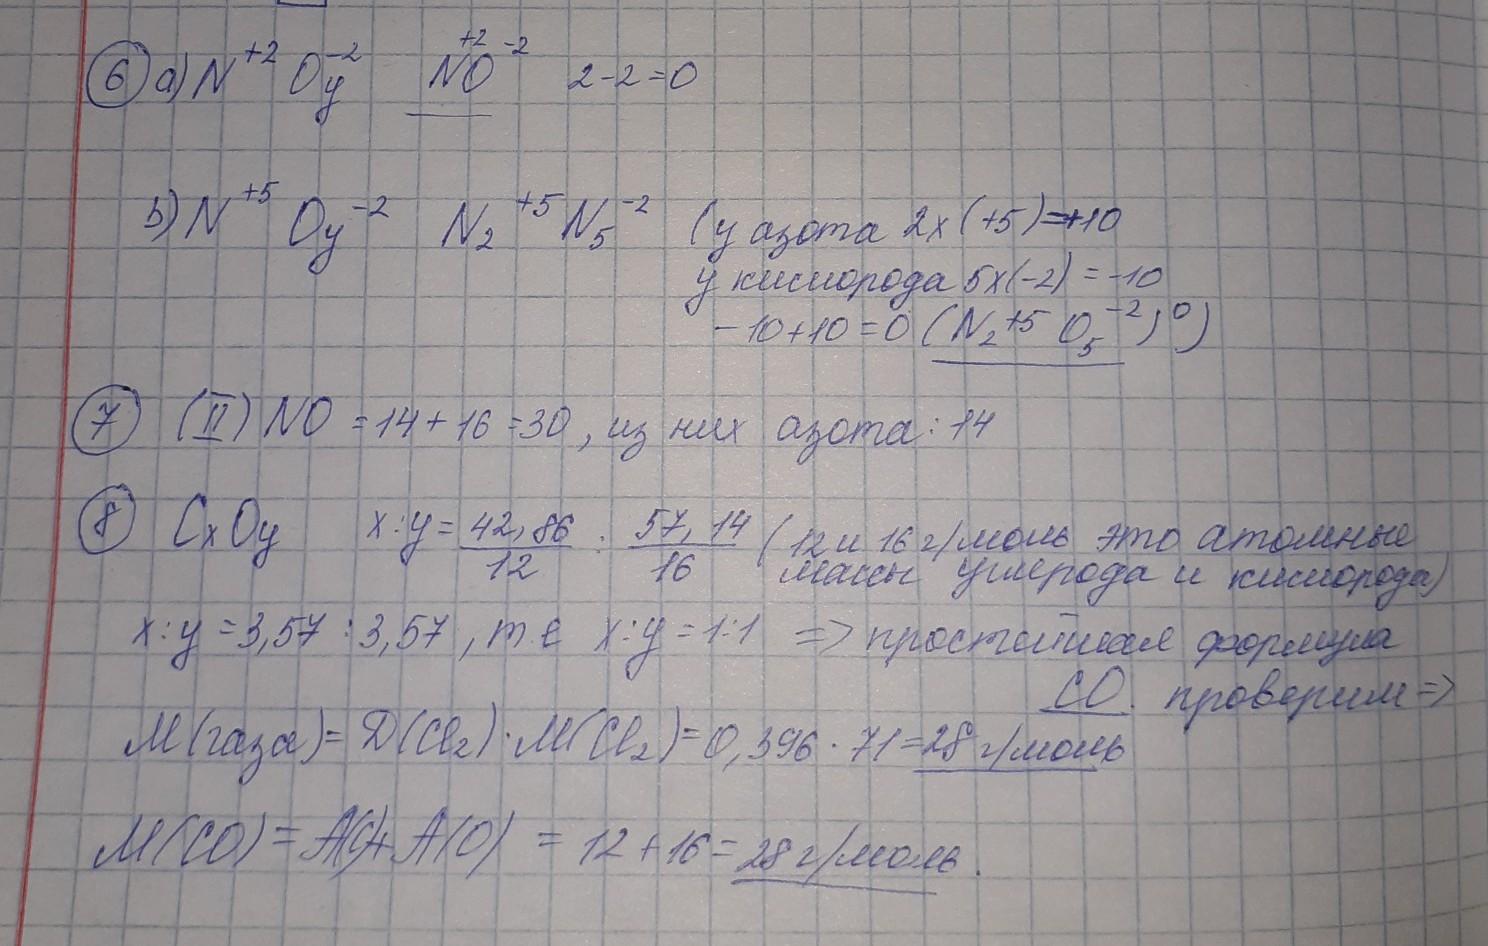 6 а) N⁺² Oy⁻² NO⁺²⁻² 2-2=0
в) N⁺⁵ Oy⁻² N₂⁺⁵N₅⁻² (у азота 2х(+5)=+10
у кислорода 5х(-2)=-10
-10+10=0 (N₂⁺⁵ O₅⁻²)⁰)
7 (II) NO = 14+16=30, из них азота: 14
8 CxOy х:у = 42,86/12 : 57,14/16 (12 и 16 г/моль это атомные
массы углерода и кислорода)
х:у = 3,57 : 3,57, т.е х:у = 1:1 => простейшая формула
CO. проверим =>
М(газа) = Д(Cl₂)·М(Cl₂) = 0,396·71 = 28 г/моль
М(CO) = А(С)+А(О) = 12+16 = 28 г/моль.